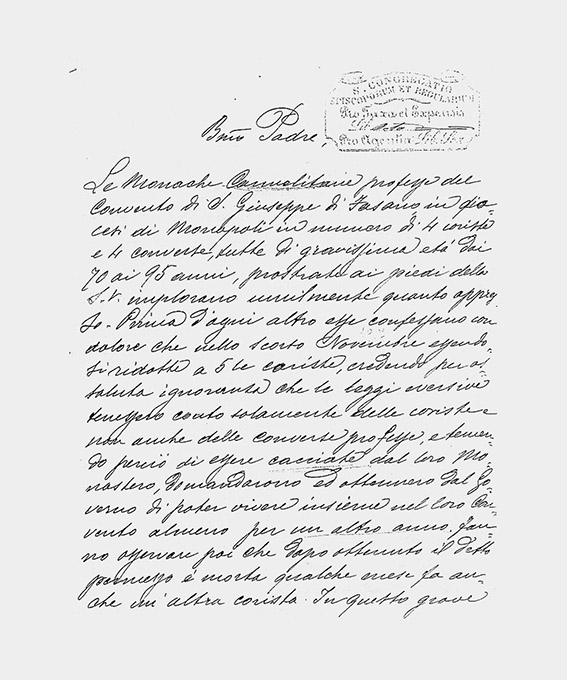 S. CONGREGATIO
EPISCOPORUM ET REGULARIUM
Pro Taxa et Expensis
Lib. octo
Pro Agentia Lib.
Bmo Padre,
Le Monache Carmelitane professe del
Convento di S. Giuseppe di Fasano in dio-
cesi di Monopoli in numero di 4 coriste
e 4 converse, tutte di gravissima età dai
70 ai 95 anni, prostrate ai piedi della
S.V. implorano umilmente quanto appres
so. Prima d'ogni altro esse confessano con
dolore che nello scorso Novembre essendo
si ridotte a 5 le coriste, credendo per as
soluta ignoranza che le leggi eversive
tenessero conto solamente delle coriste e
non anche delle converse professe, e temen
do perciò di essere cacciate dal loro Mo-
nastero, domandarono ed ottennero dal Go-
verno di poter vivere insieme nel loro Con-
vento almeno per un altro anno. Fan-
no osservare poi che dopo ottenuto il detto
permesso è morta qualche mese fa an-
che un'altra corista. In questo grave